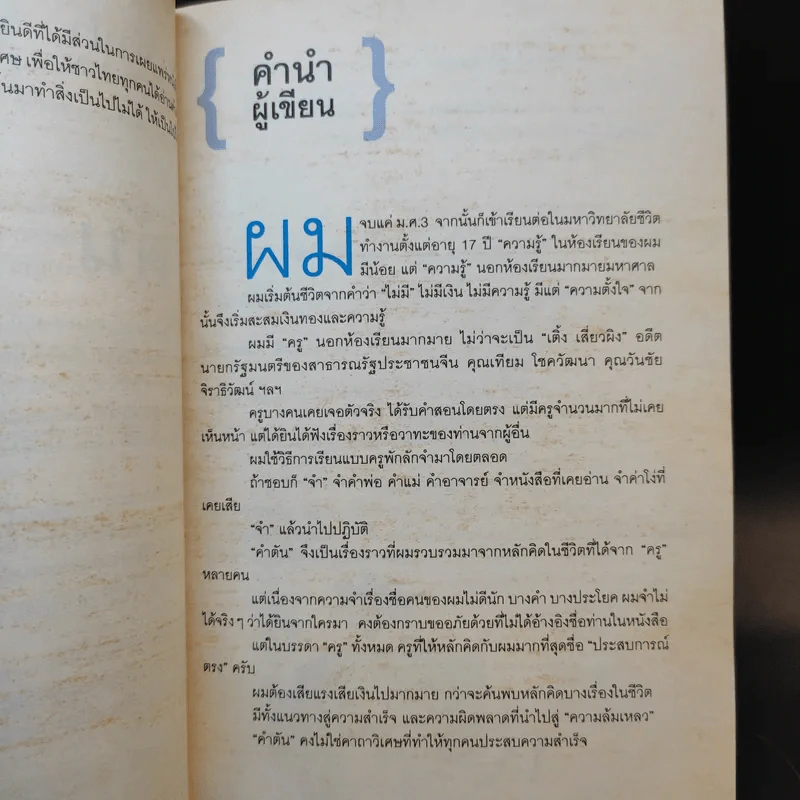 ยินดีที่ได้มีส่วนในการเผยแพร่
เพื่อให้ชาวไทยทุกคนได้อ่าน
มาทำสิ่งเป็นไปไม่ได้ ให้เป็น
{ คำนำ }
ผู้เขียน
ผม จบแค่ ม.ศ.3 จากนั้นก็เข้าเรียนต่อในมหาวิทยาลัยชีวิต
ทำงานตั้งแต่อายุ 17 ปี “ความรู้” ในห้องเรียนของผม
มีน้อย แต่ “ความรู้” นอกห้องเรียนมากมายมหาศาล
ผมเริ่มต้นชีวิตจากคำว่า “ไม่มี” ไม่มีเงิน ไม่มีความรู้ มีแต่ “ความตั้งใจ” จาก
นั้นจึงเริ่มสะสมเงินทองและความรู้
ผมมี “ครู” นอกห้องเรียนมากมาย ไม่ว่าจะเป็น “เติ้ง เสี่ยวผิง” อดีต
นายกรัฐมนตรีของสาธารณรัฐประชาชนจีน คุณเทียม โชควัฒนา คุณวันชัย
จิราธิวัฒน์ ฯลฯ
ครูบางคนเคยเจอตัวจริง ได้รับคำสอนโดยตรง แต่มีครูจำนวนมากที่ไม่เคย
เห็นหน้า แต่ได้ยินได้ฟังเรื่องราวหรือวาทะของท่านจากผู้อื่น
ผมใช้วิธีการเรียนแบบครูพักลักจำมาโดยตลอด
ถ้าชอบก็ “จำ” จำคำพ่อ คำแม่ คำอาจารย์ จำหนังสือที่เคยอ่าน จำค่าโง่ที่
เคยเสีย
“จำ” แล้วนำไปปฏิบัติ
“คำตัน” จึงเป็นเรื่องราวที่ผมรวบรวมมาจากหลักคิดในชีวิตที่ได้จาก “ครู”
หลายคน
แต่เนื่องจากความจำเรื่องชื่อคนของผมไม่ดีนัก บางคำ บางประโยค ผมจำไม่
ได้จริงๆ ว่าได้ยินจากใครมา คงต้องกราบขออภัยด้วยที่ไม่ได้อ้างอิงชื่อท่านในหนังสือ
แต่ในบรรดา “ครู” ทั้งหมด ครูที่ให้หลักคิดกับผมมากที่สุดชื่อ “ประสบการณ์
ตรง” ครับ
ผมต้องเสียแรงเสียเงินไปมากมาย กว่าจะค้นพบหลักคิดบางเรื่องในชีวิต
มีทั้งแนวทางสู่ความสำเร็จ และความผิดพลาดที่นำไปสู่ “ความล้มเหลว”
“คำตัน” คงไม่ใช่คาถาวิเศษที่ทำให้ทุกคนประสบความสำเร็จ